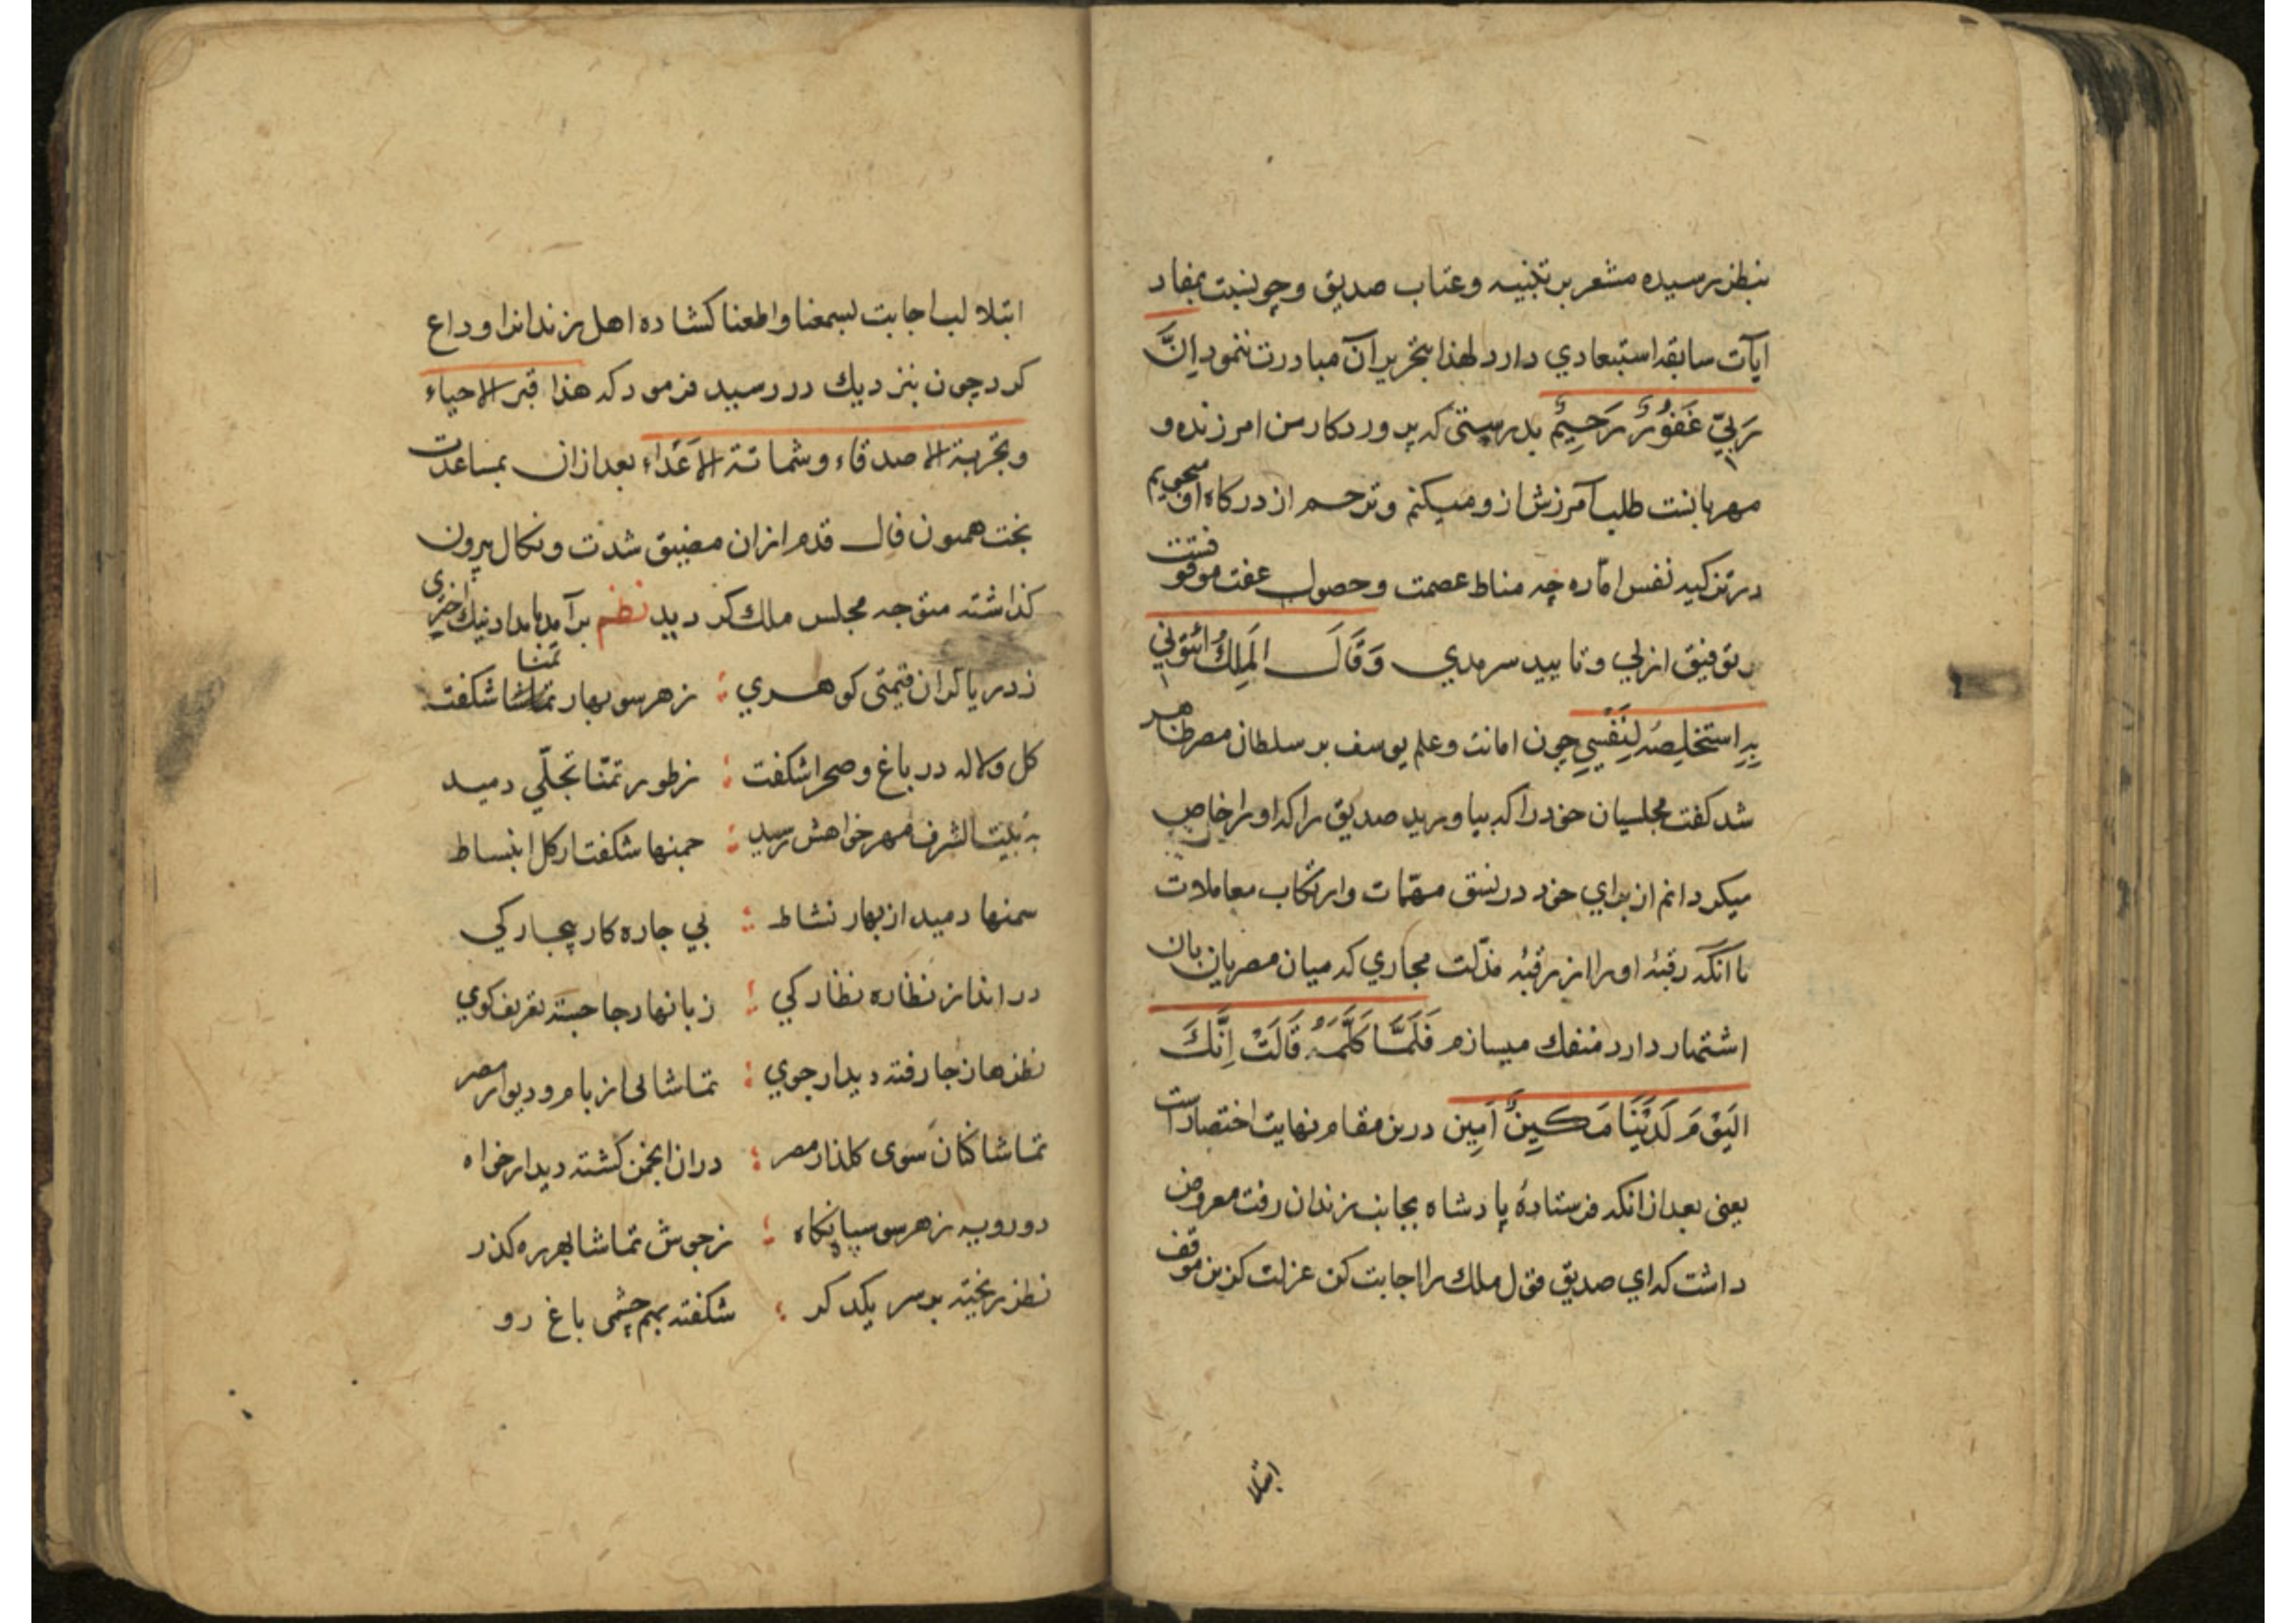 بنظر رسیده مشعر بر تنبیه و عتاب صدیق و چو نسبت بمفاد
آیات سابقه استبعادي دارد لهذا بتحریر آن مبادرت ننمود اِنَّ
رَبّيِ غَفُوْرٌ رَحِیْمٌ بدرستی که پروردکار من امرزنده و
مهربانست طلب آمرزش ازو میکنم و ترحم از درکاه او میجویم
در تزکیه نفس امّاره چه مناط عصمت و حصول عفت موقوفست
بتوفیق ازلي و تایید سرمدي وَ قَالَ المَلِكُ ائْتُوْنِي
بِهِ اَستَخلِصْهُ لِنَفْسِي چون امانت و علم یوسف بر سلطان مصر ظاهر
شد کفت مجلسیان خود را که بیاورید صدیق را که او را خاص
میکردانم از برای خود در نسق مهمّات و ارتکاب معاملات
تا آنکه رقبۀ او را از ربقۀ مذلت مجاري که میان مصریان بان
اشتهار دارد منفك میسازم فَلَمَّا کَلَّمَهُ قَالَ اِنَّكَ
الیَوْمَ لَدَیْنَا مَكِینٌ اَمِین درین مقام نهایت اختصار است
یعنی بعد از انکه فرستادۀ پادشاه بجانب زندان رفت معروض
داشت که اي صدیق قول ملك را اجابت کن عزلت کزین موقف
ابتلا
ابتلا لب اجابت بسمعنا و اطعنا کشاده اهل زندانرا وداع
کرد چون بنزدیك در رسید فرمود که هذا قبر الاحیاء
و تجربة الاصدقاء و شماتة الاَعْدَاء بعد ازان بمساعدت
بخت همیون فال قدم ازان مضیق شدت و نکال بیرون
کذاشته متوجه مجلس ملك کردید نظم برآمد بامداد نیك اختری
ز دریا کران قیمتی کوهري ؛ ز هر سو بهار تمنا شکفت
تماشا
کل و لاله در باغ و صحرا شکفت ؛ ز طور تمنّا تجلّي دمید
به بیت الشرف مهر خواهش رسید ؛ چمنها شکفت از کل انبساط
سمنها دمید از بهار نشاط ؛ بي چاره کار بیچارکي
در انداز نظاره نظارکي ؛ زبانها بجا جسته تعریف کوي
نظرها ز جا رفته دیدار جوي ؛ تماشائی از بام و دیوار مصر
تماشا کنان سوی کلذار مصر ؛ دران انجمن کشته دیدار خواه
دو رویه ز هر سو سپاه نکاه ؛ ز جوش تماشا بهر ره کذر
نظر ریخته بر سر یکدکر ؛ شکفته بهم چشمی باغ رو